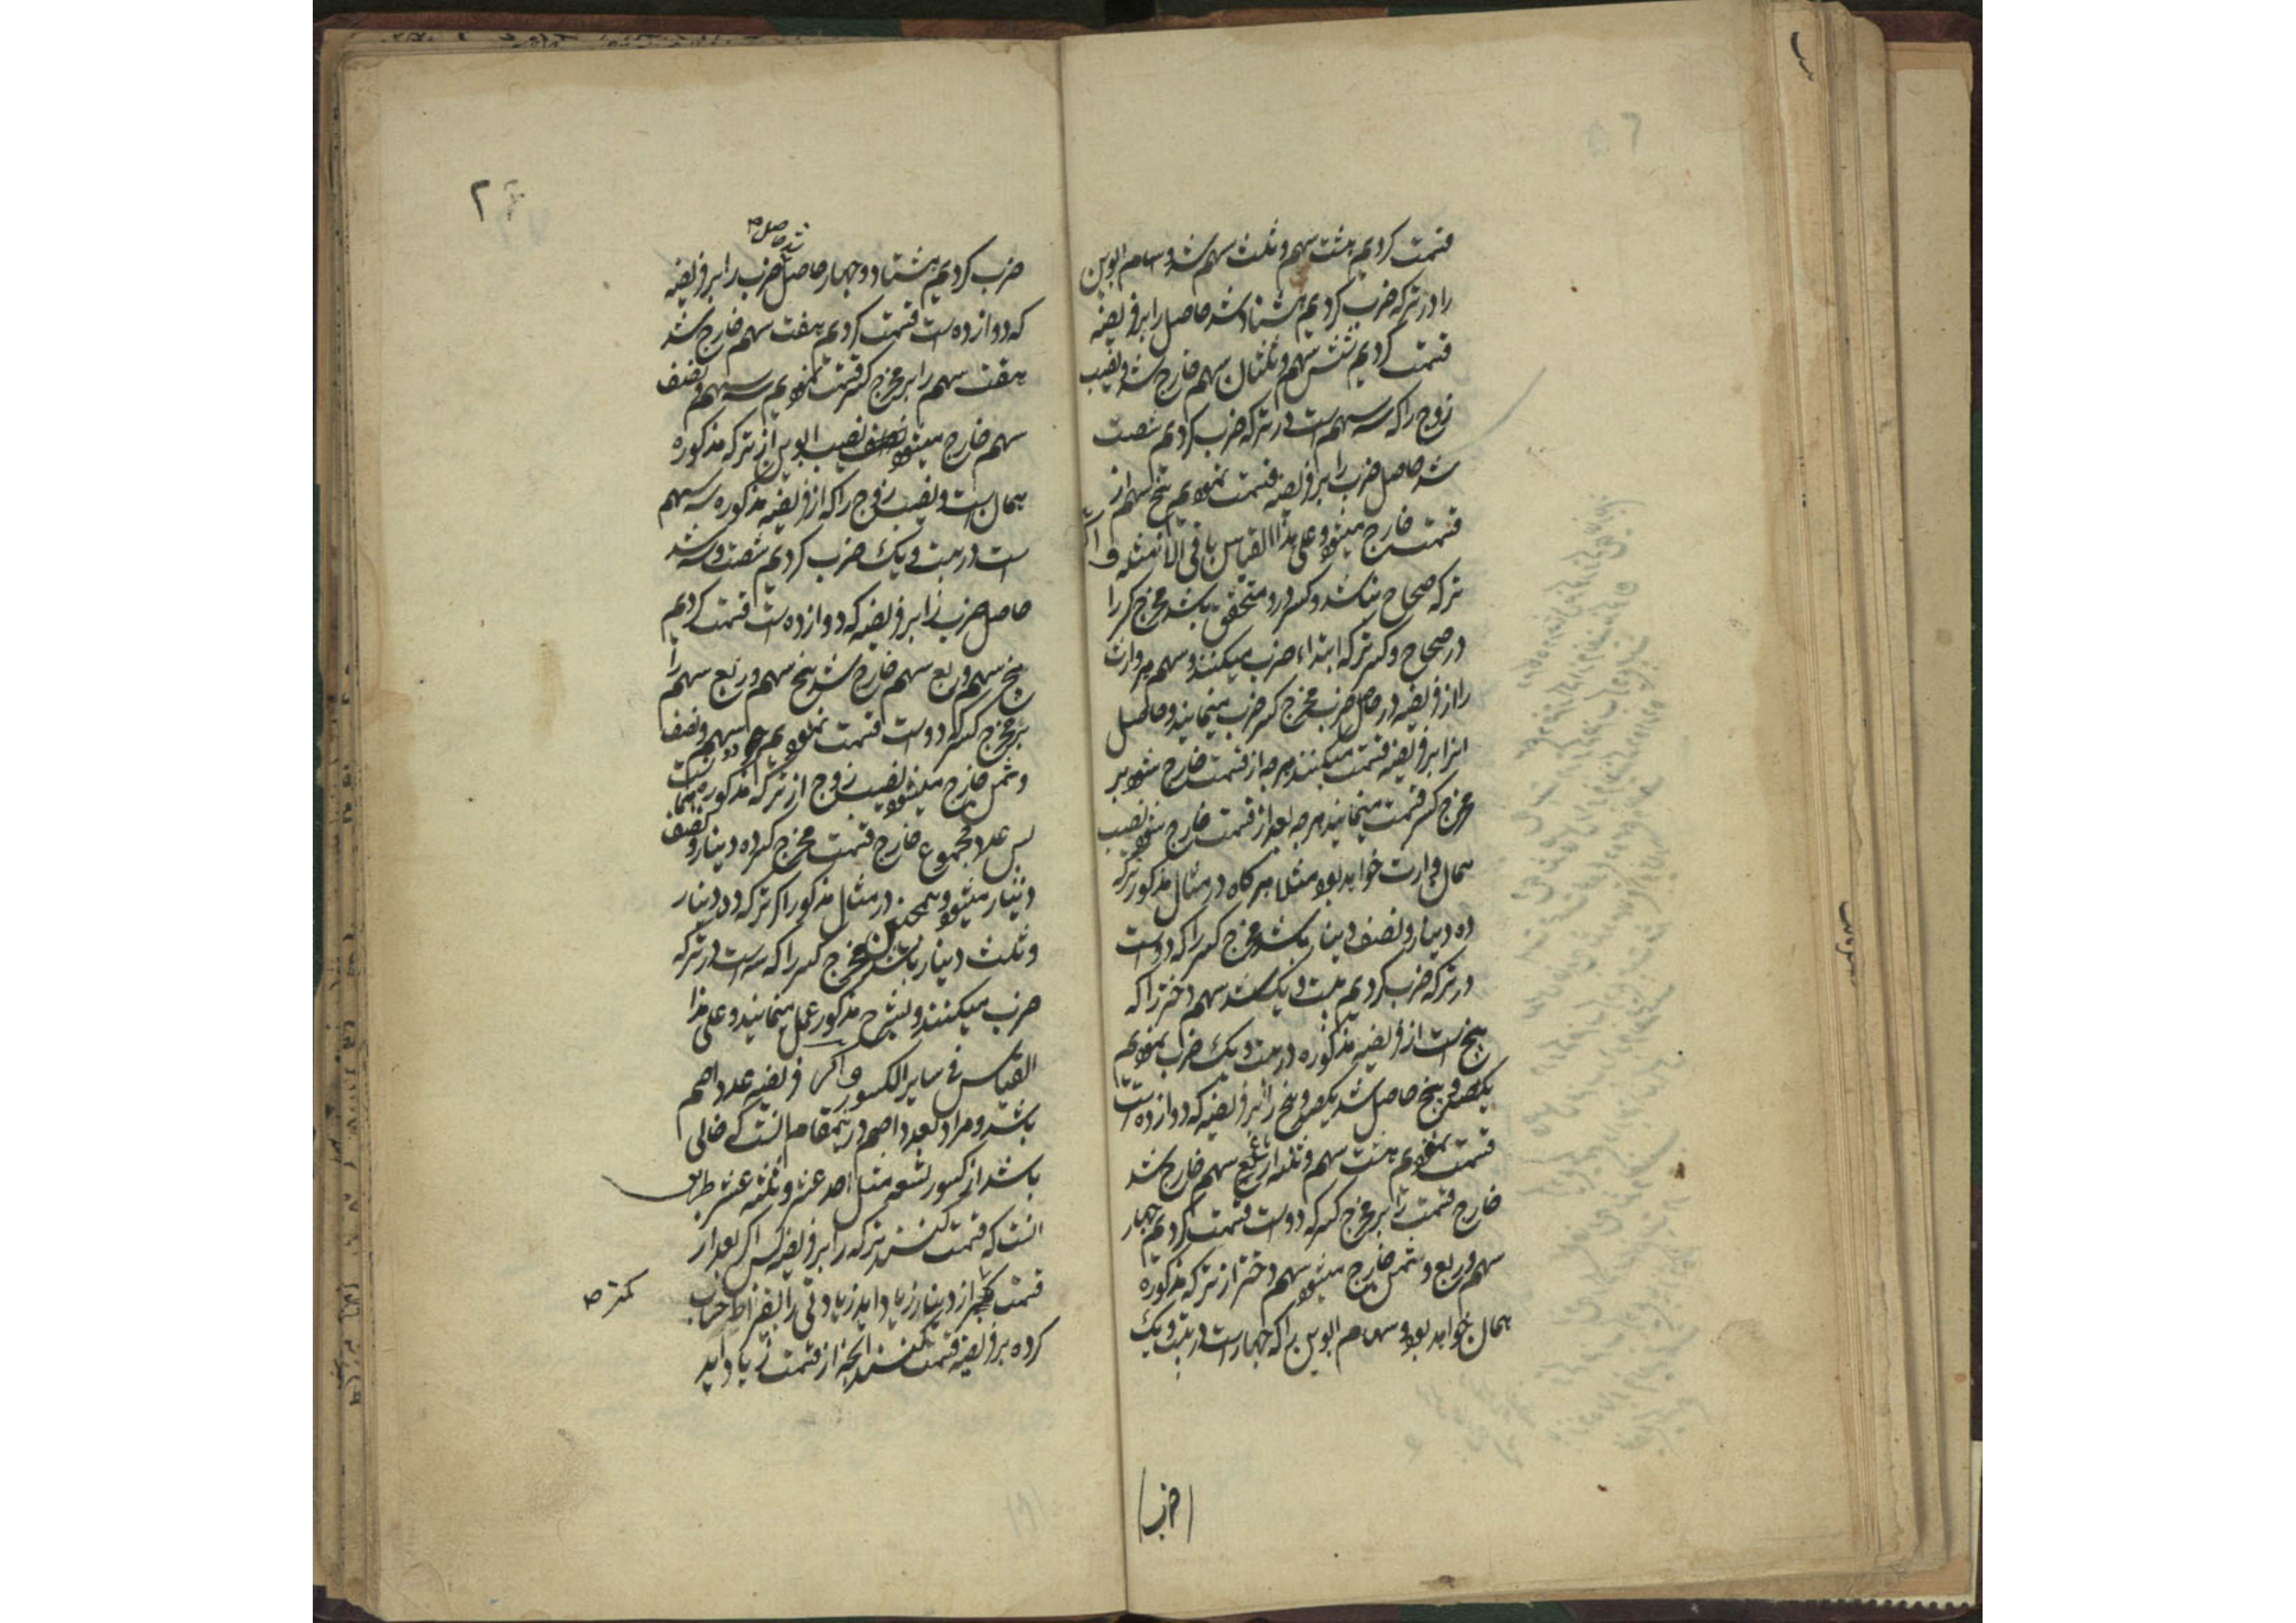 قسمت کردیم هشت سهم و ثلث سهم شد و سهام ابوین
را در ترکه ضرب کردیم هشتاد شد حاصل را بر فریضه
قسمت کردیم شش سهم و ثلثان سهم خارج شد و نصیب
زوج را که سه سهم است در ترکه ضرب کردیم شصت
شد حاصل ضرب را بر فریضه قسمت نمودیم پنج سهم از
قسمت خارج میشود و علی هذا القیاس باقی الامثله و اگر
ترکه صحاح نباشد و کسر در او متحقق باشد مخرج کسر را
در صحاح و کسر ترکه ابتداء ضرب میکنند و سهم هر وارث
را از فریضه در حاصل ضرب مخرج کسر ضرب مینمایند و حاصل
انرا بر فریضه قسمت میکنند هر چه از قسمت خارج شود بر
مخرج کسر قسمت مینمایند هر چه بعد از قسمت خارج شود نصیب
همان وارث خواهد بود مثلا هر کاه در مثال مذکور ترکه
ده دینار و نصف دینار باشد مخرج کسر را که دو است
در ترکه ضرب کردیم بیست و یک شد سهم دختر را که
پنج است از فریضه مذکوره در بیست و یک ضرب نمودیم
یکصد و پنج حاصل شد یکصد و پنج را بر فریضه که دوازده است
قسمت نمودیم هشت سهم و ثلثه ارباع سهم خارج شد
خارج قسمت را بر مخرج کسر که دو است قسمت کردیم چهار
سهم و ربع و ثمن خارج میشود سهم دختر از ترکه مذکوره
همان خواهد بود و سهام ابوین را که چهار است در بیست و یک
(ضرب)
۲
شد حاصل صح
ضرب کردیم هشتاد و چهار حاصل ضرب را بر فریضه
که دوازده است قسمت کردیم هفت سهم خارج شد
هفت سهم را بر مخرج کسر قسمت نمودیم سه سهم و نصف
سهم خارج میشود نصیب ابوین از ترکه مذکوره
همان است و نصیب زوج را که از فریضه مذکوره سه سهم
است در بیست و یک ضرب کردیم شصت و سه شد
حاصل ضرب را بر فریضه که دوازده است قسمت کردیم
پنج سهم و ربع سهم خارج شد پنج سهم و ربع سهم را
بر مخرج کسر که دو است قسمت نمودیم دو سهم و نصف
و ثمن خارج میشود نصیب زوج از ترکه مذکور همانست
پس عدد مجموع خارج قسمت مخرج کسر ده دینار و نصف
دینار میشود و همچنین در مثال مذکور اگر ترکه ده دینار
و ثلث دینار باشد مخرج کسر را که سه است در ترکه
ضرب میکنند و بشرح مذکور عمل مینمایند و علی هذا
القیاس فی سایر الکسور و اگر فریضه عدد اصم
باشد و مراد بعدد اصم در ینمقام انست که خالی
باشد از کسور تسعه مثل احد عشر و ثلثه عشر طریق
انست که قسمت کنند ترکه را بر فریضه پس اگر بعد از
قسمت کمتر از دینار زیاد اید زیادتی را بقیراط حساب
کمتر صح
کرده بر فریضه قسمت کنند انچه از قسمت زیاد اید